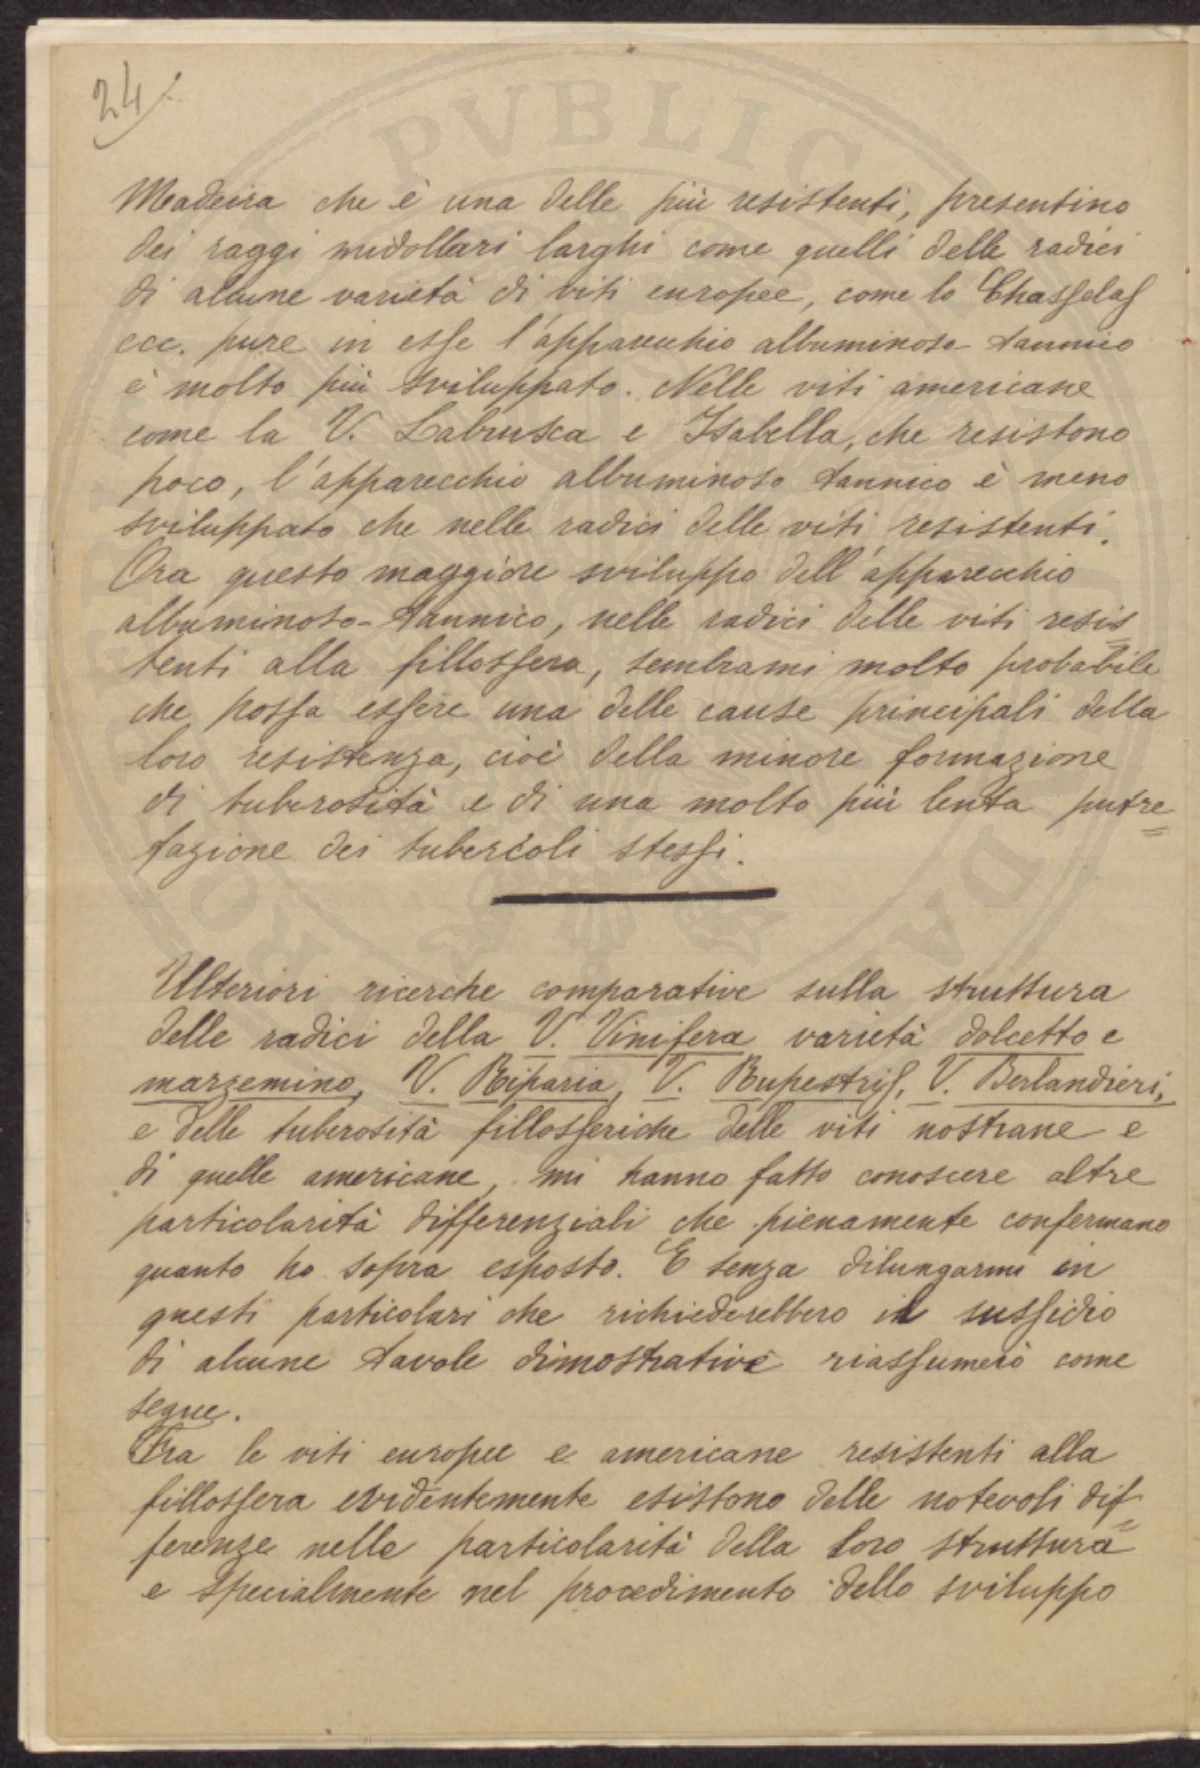 24
Madeira che è una delle più resistenti, presentino
dei raggi midollari larghi come quelli delle radici
di alcune varietà di viti europee, come lo Chasselas
ecc. pure in esse l'apparecchio albuminoso-tannico
è molto più sviluppato. Nelle viti americane
come la V. Labrusca e Isabella, che resistono
poco, l'apparecchio albuminoso tannico è meno
sviluppato che nelle radici delle viti resistenti.
Ora questo maggiore sviluppo dell'apparecchio
albuminoso-tannico, nelle radici delle viti resis=
tenti alla fillossera, sembrami molto probabile
che possa essere una delle cause principali della
loro resistenza, cioè della minore formazione
di tuberosità e di una molto più lenta putre=
fazione dei tubercoli stessi.
Ulteriori ricerche comparative sulla struttura
delle radici della V. Vinifera varietà dolcetto e
marzemino, V. Riparia, V. Rupestris, V. Berlandieri,
e delle tuberosità fillosseriche delle viti nostrane e
di quelle americane, mi hanno fatto conoscere altre
particolarità differenziali che pienamente confermano
quanto ho sopra esposto. E senza dilungarmi in
questi particolari che richiederebbero il sussidio
di alcune tavole dimostrative riassumerò come
segue.
Fra le viti europee e americane resistenti alla
fillossera evidentemente esistono delle notevoli dif=
ferenze nelle particolarità della loro struttura
e specialmente nel procedimento dello sviluppo
PVBLIC